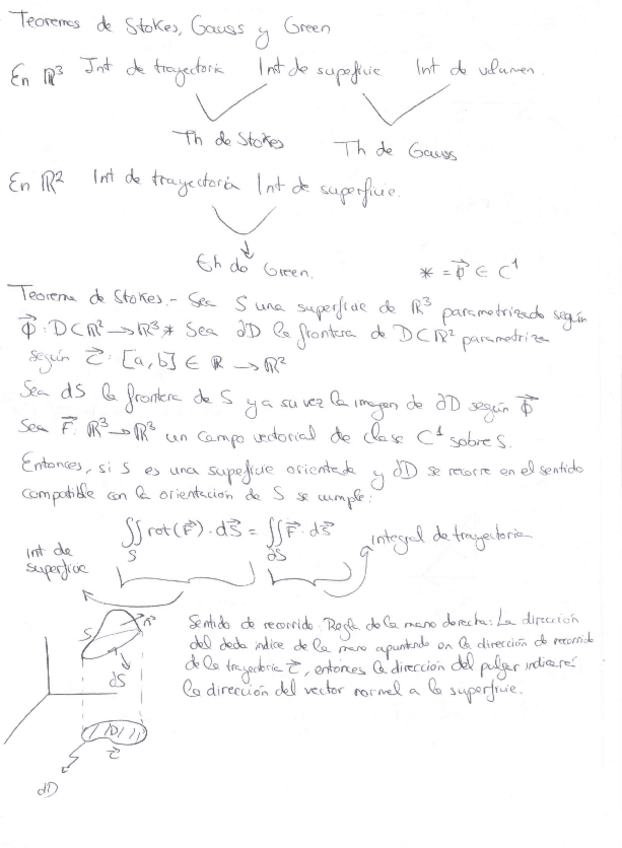 Teoremas de Stokes, Gauss y Green
En ℝ³ Int de trayectoria Int de superficie Int de volumen.
Th de Stokes Th de Gauss
En ℝ² Int de trayectoria Int de superficie.
Th de Green.
* = Φ⃗ ∈ C¹
Teorema de Stokes.- Sea S una superficie de ℝ³ parametrizado según
Φ⃗: D⊂ℝ² → ℝ³ * Sea ∂D la frontera de D⊂ℝ² parametriza
según c⃗: [a,b] ∈ ℝ → ℝ²
Sea ∂S la frontera de S y a su vez la imagen de ∂D según Φ⃗
Sea F⃗: ℝ³→ℝ³ un campo vectorial de clase C¹ sobre S.
Entonces, si S es una superficie orientada y ∂D se recorre en el sentido
compatible con la orientación de S se cumple:
∬_S rot(F⃗)·dS⃗ = ∬_∂S F⃗·dS⃗
integral de trayectoria
Int de
superficie
Sentido de recorrido: Regla de la mano derecha: La dirección
del dedo indice de la mano apuntando en la dirección de recorrido
de la trayectoria c⃗, entonces la dirección del pulgar indicará
la dirección del vector normal a la superficie.
S
n⃗
∂S
D
c⃗
∂D